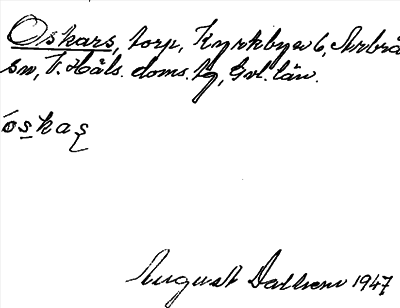 Oskars, torp, Kyrkbyn 6, Arbrå
sn, V. Häls. doms. tg, Gvl. län.
óskaʂ
August Dalhem 1947